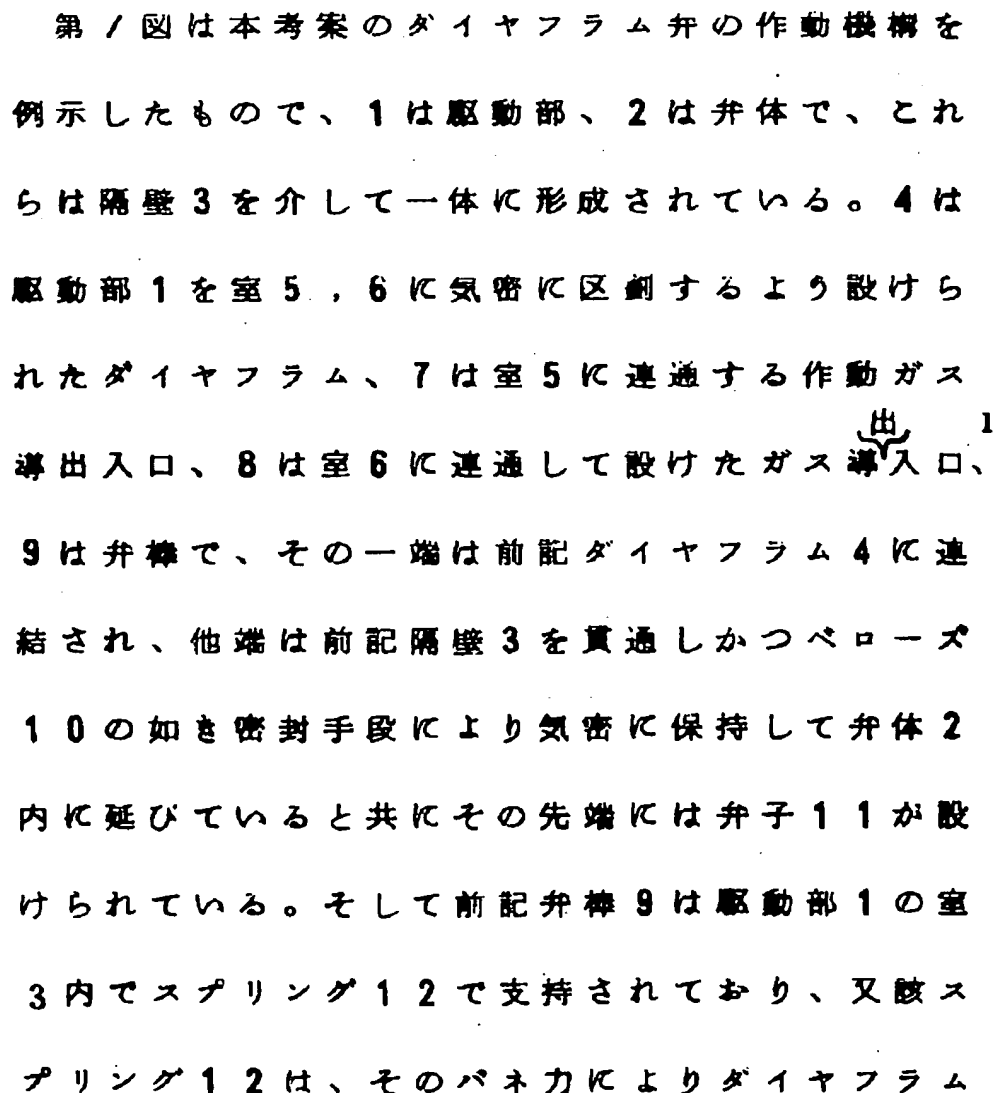 第1図は本考案のダイヤフラム弁の作動機構を
例示したもので、1は駆動部、2は弁体で、これ
らは隔壁3を介して一体に形成されている。4は
駆動部1を室5，6に気密に区劃するよう設けら
れたダイヤフラム、7は室5に連通する作動ガス
出 1
導出入口、8は室6に連通して設けたガス導入口、
9は弁棒で、その一端は前記ダイヤフラム4に連
結され、他端は前記隔壁3を貫通しかつベローズ
10の如き密封手段により気密に保持して弁体2
内に延びていると共にその先端には弁子11が設
けられている。そして前記弁棒9は駆動部1の室
3内でスプリング12で支持されており、又該ス
プリング12は、そのバネ力によりダイヤフラム